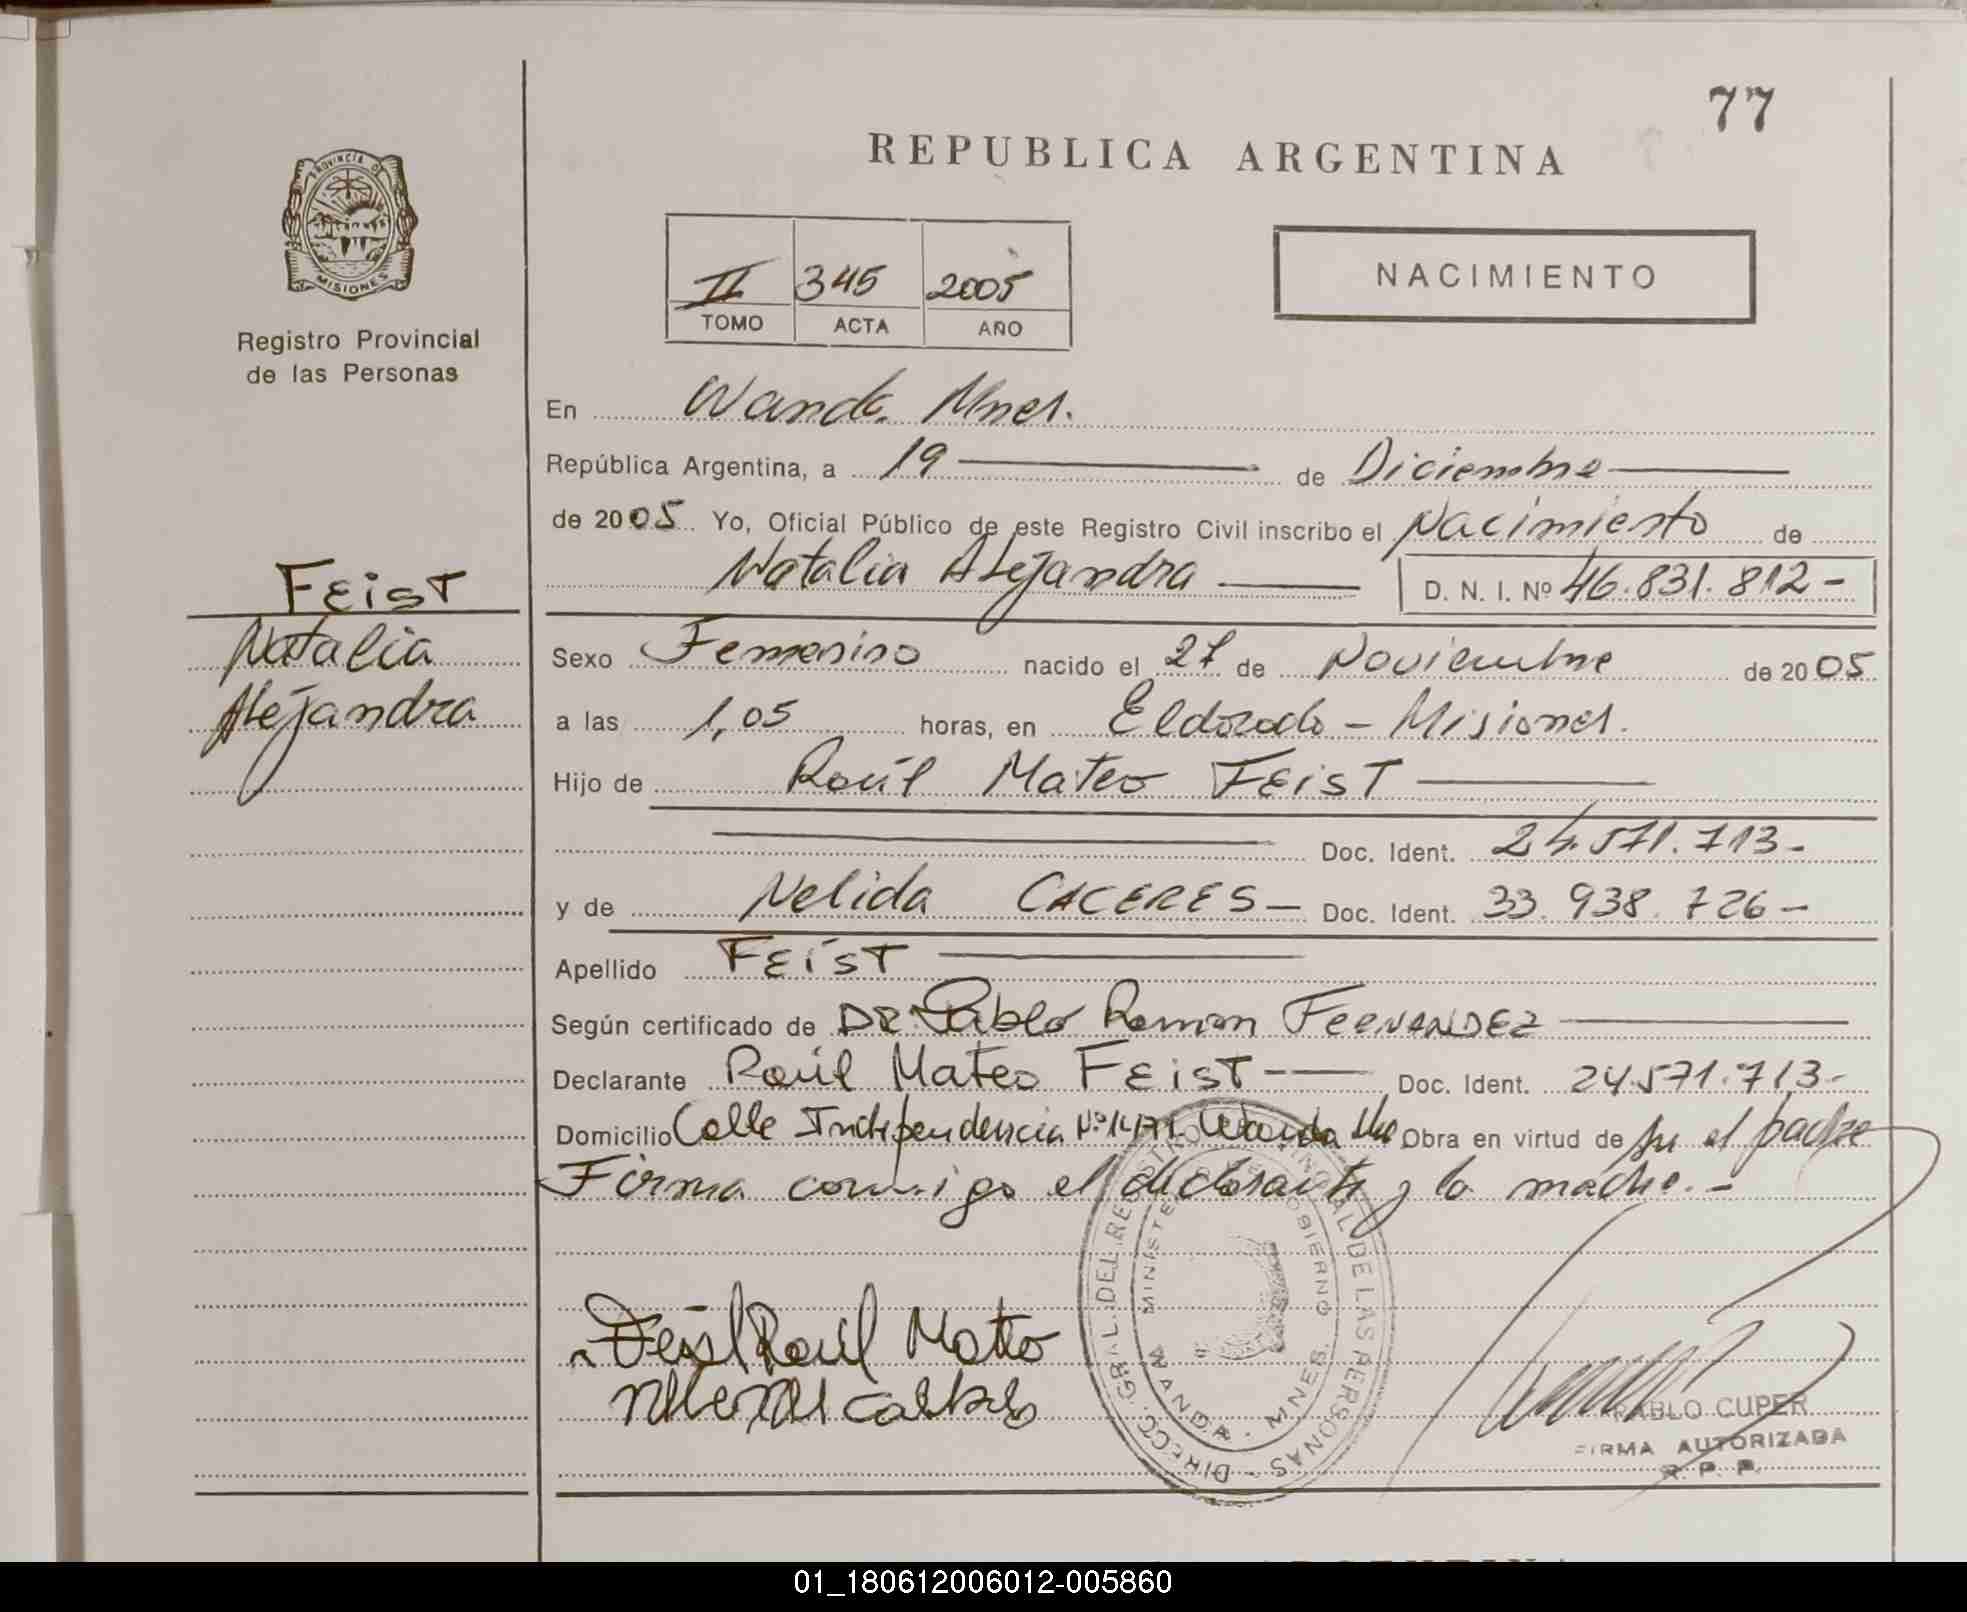 77
REPUBLICA ARGENTINA
PROVINCIA DE
MISIONES
Registro Provincial
de las Personas
II 345 2005
TOMO ACTA AÑO
NACIMIENTO
En Wanda Mnes.
República Argentina, a 19 de Diciembre
de 2005 Yo, Oficial Público de este Registro Civil inscribo el Nacimiento de
Natalia Alejandra D. N. I. Nº 46.831.812-
FEIST
Natalia
Alejandra
Sexo Femenino nacido el 27 de Noviembre de 2005
a las 1,05 horas, en Eldorado - Misiones.
Hijo de Raúl Mateo FEIST
Doc. Ident. 24.571.713-
y de Nelida CACERES - Doc. Ident. 33.938.726-
Apellido FEIST
Según certificado de DR. Pablo Ramon FERNANDEZ
Declarante Raúl Mateo FEIST Doc. Ident. 24.571.713-
Domicilio Calle Independencia Nº Wanda Obra en virtud de ser el padre
Firma conmigo el declarante y la madre.-
DIRECC. GRAL. DEL REGISTRO PROVINCIAL DE LAS PERSONAS
MINISTERIO DE GOBIERNO
WANDA - MNES.
Feist Raúl Mateo
PABLO CUPER
FIRMA AUTORIZADA
R. P. P.
01_180612006012-005860